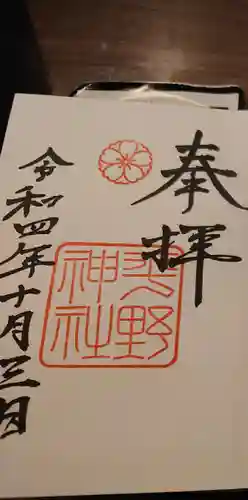 奉拝
野
神社
令和四年十月三日